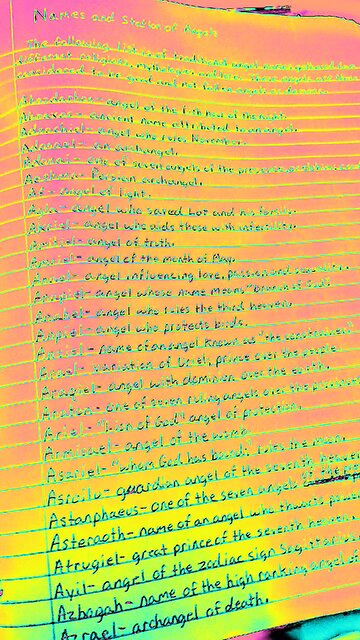 Names and Station of Angels
The following list is of traditional angel names gathered from
different religions, mythologies, and lore. These angels are those
considered to be good and not fallen angels or demons.
angel of the fifth hour of the night.
current name attributed to an angel.
angel who rules November.
Adramel- an archangel.
Adonai- one of seven angels of the presence
Persian archangel.
Af- angel of light.
Agla- angel who saved Lot and his family.
Akriel- angel who aids those with infertility.
angel of truth.
angel of the month of May.
Anael- angel influencing love, passion and sexuality.
angel whose name means "branch of God."
Anahel- angel who rules the third heaven.
Anpiel- angel who protects birds.
name of an angel known as "the
Arael- variation of Uriel, prince over the people.
Araqiel- angel with dominion over the earth.
Araton- one of seven ruling angels over the
Ariel- "Lion of God" angel of protection.
Armisael- angel of the womb.
Asariel- "whom God has bound," rules the moon.
Asroilu- guardian angel of the seventh heaven
Astanphaeus- one of the seven angels of the
Asteraoth- name of an angel who thwarts power
Atrugiel- great prince of the seventh heaven.
Ayil- angel of the zodiac sign Sagittarius
Azbogah- name of the high ranking angel of
Azrael- archangel of death.